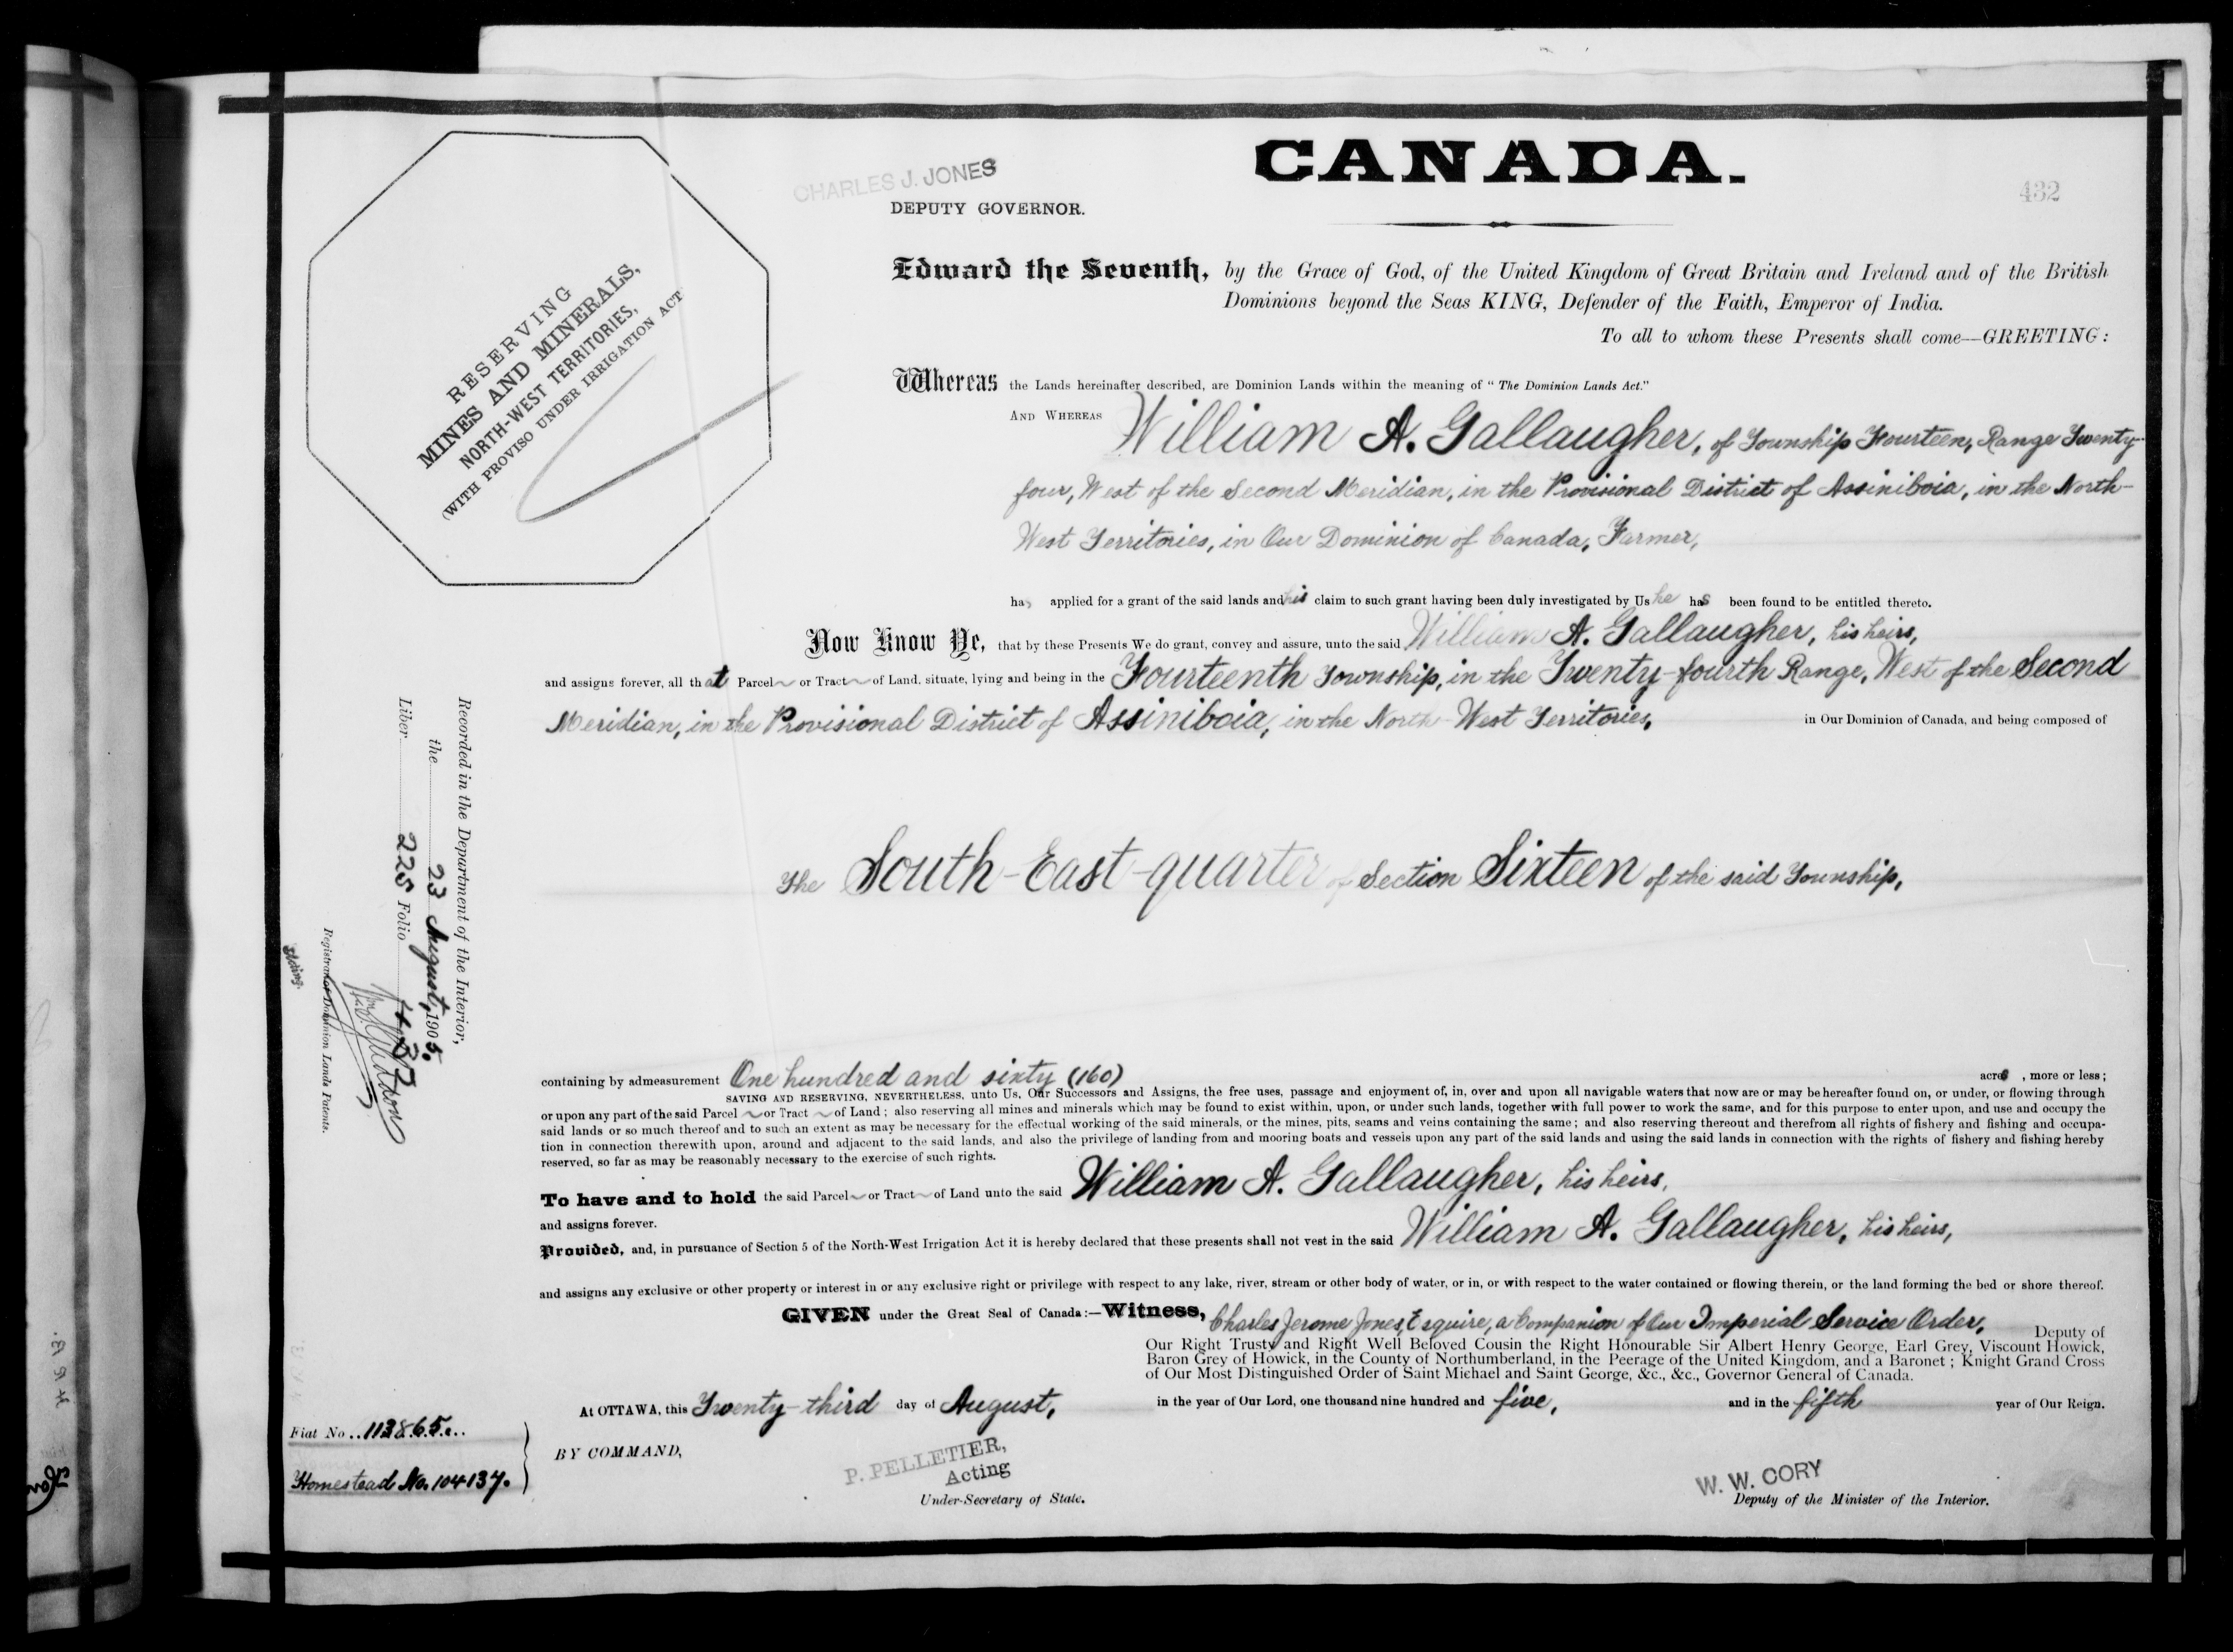 CANADA.
432
CHARLES J. JONES
DEPUTY GOVERNOR.
RESERVING
MINES AND MINERALS,
NORTH-WEST TERRITORIES,
(WITH PROVISO UNDER IRRIGATION ACT
Edward the Seventh, by the Grace of God, of the United Kingdom of Great Britain and Ireland and of the British
Dominions beyond the Seas KING, Defender of the Faith, Emperor of India.
To all to whom these Presents shall come—GREETING:
Whereas the Lands hereinafter described, are Dominion Lands within the meaning of "The Dominion Lands Act."
AND WHEREAS William A. Gallaugher, of Township Fourteen, Range Twenty-
four, West of the Second Meridian, in the Provisional District of Assiniboia, in the North-
West Territories, in Our Dominion of Canada, Farmer,
has applied for a grant of the said lands and his claim to such grant having been duly investigated by Us he has been found to be entitled thereto.
Now Know Ye, that by these Presents We do grant, convey and assure, unto the said William A. Gallaugher, his heirs,
and assigns forever, all that Parcel or Tract of Land, situate, lying and being in the Fourteenth Township, in the Twenty-fourth Range, West of the Second
Meridian, in the Provisional District of Assiniboia, in the North-West Territories, in Our Dominion of Canada, and being composed of
The South-East-quarter of Section Sixteen of the said Township,
containing by admeasurement One hundred and sixty (160) acres, more or less;
SAVING AND RESERVING, NEVERTHELESS, unto Us, Our Successors and Assigns, the free uses, passage and enjoyment of, in, over and upon all navigable waters that now are or may be hereafter found on, or under, or flowing through
or upon any part of the said Parcel or Tract of Land; also reserving all mines and minerals which may be found to exist within, upon, or under such lands, together with full power to work the same, and for this purpose to enter upon, and use and occupy the
said lands or so much thereof and to such an extent as may be necessary for the effectual working of the said minerals, or the mines, pits, seams and veins containing the same; and also reserving thereout and therefrom all rights of fishery and fishing and occupa-
tion in connection therewith upon, around and adjacent to the said lands, and also the privilege of landing from and mooring boats and vessels upon any part of the said lands and using the said lands in connection with the rights of fishery and fishing hereby
reserved, so far as may be reasonably necessary to the exercise of such rights.
To have and to hold the said Parcel or Tract of Land unto the said William A. Gallaugher, his heirs,
and assigns forever.
Provided, and, in pursuance of Section 5 of the North-West Irrigation Act it is hereby declared that these presents shall not vest in the said William A. Gallaugher, his heirs,
and assigns any exclusive or other property or interest in or any exclusive right or privilege with respect to any lake, river, stream or other body of water, or in, or with respect to the water contained or flowing therein, or the land forming the bed or shore thereof.
GIVEN under the Great Seal of Canada:—Witness, Charles Jerome Jones, Esquire, a Companion of Our Imperial Service Order, Deputy of
Our Right Trusty and Right Well Beloved Cousin the Right Honourable Sir Albert Henry George, Earl Grey, Viscount Howick,
Baron Grey of Howick, in the County of Northumberland, in the Peerage of the United Kingdom, and a Baronet; Knight Grand Cross
of Our Most Distinguished Order of Saint Michael and Saint George, &c., &c., Governor General of Canada.
At OTTAWA, this Twenty-third day of August, in the year of Our Lord, one thousand nine hundred and five, and in the fifth year of Our Reign.
BY COMMAND,
P. PELLETIER,
Acting
Under-Secretary of State.
W. W. CORY
Deputy of the Minister of the Interior.
Recorded in the Department of the Interior,
the 23 August, 1905.
Liber 225 Folio 432
Registrar of Dominion Lands Patents.
Fiat No. 113865.
Homestead No. 104137.